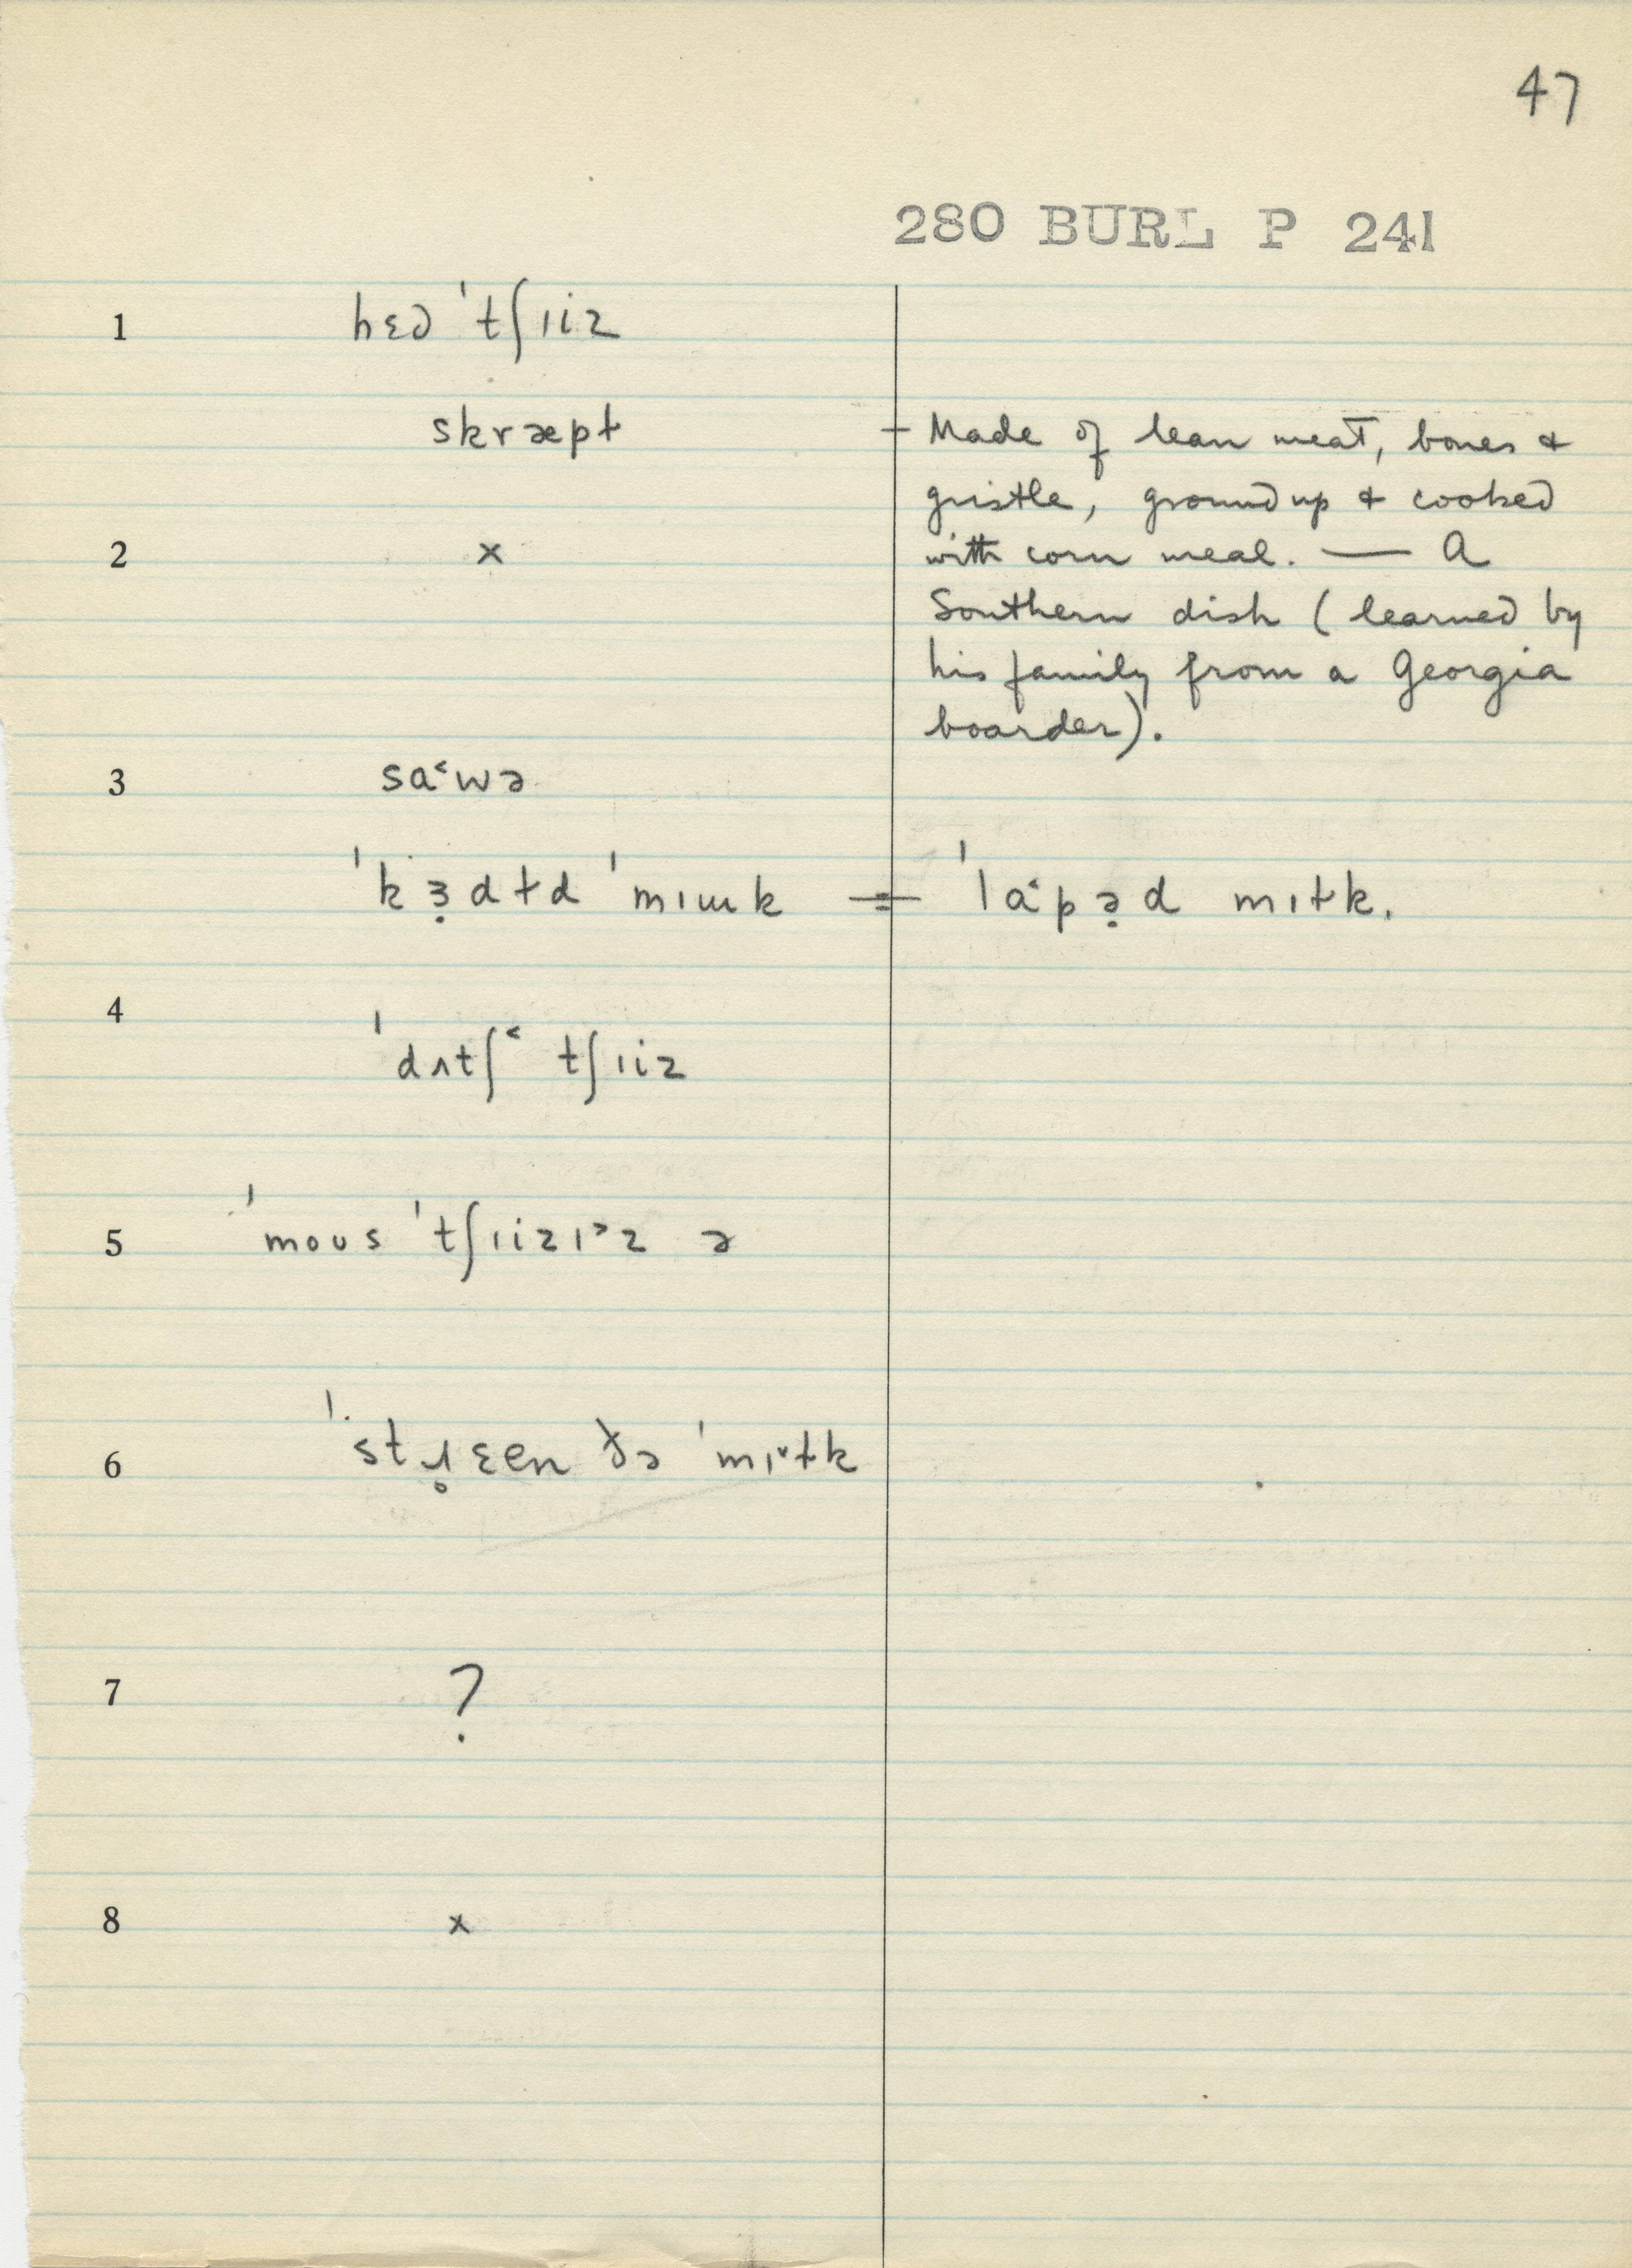 47
280 BURL P 241
1 hɛd ˈtʃɪiz
skræpɫ + Made of lean meat, bones &
gristle, ground up & cooked
2 x with corn meal. — A
Southern dish (learned by
his family from a Georgia
boarder).
3 sa˂wə
ˈkɜ̣dɫd ˈmɪɯk = ˈla˂pə̣d mɪɫk.
4
ˈdʌtʃ˂ tʃɪiz
5 ˈmoʊs ˈtʃɪizɪ˃z ə
6 ˈstɹ̥ɛen ðə ˈmɪ˅ɫk
7 ?
8 x